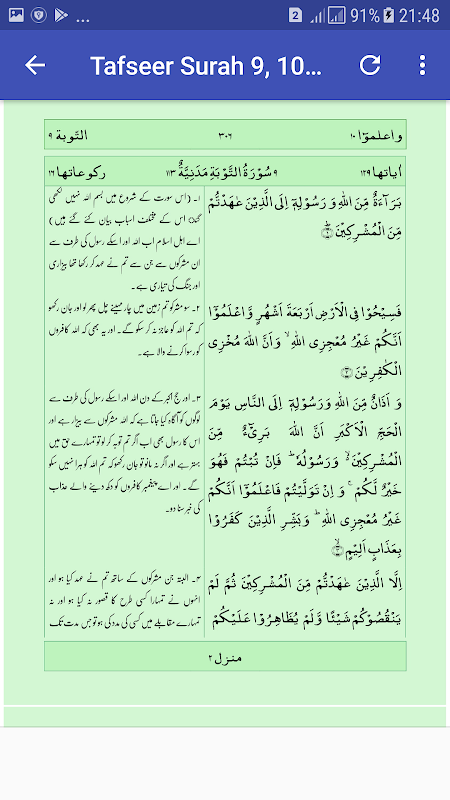 2 91% 21:48
Tafseer Surah 9, 10...
واعلموٓا ۱۰ ۳۰۲ التوبة ۹
اٰیاتها ۱۲۹ ۹ سُوْرَةُ التَّوْبَةِ مَدَنِیَّةٌ ۱۱۳ رکوعاتها ۱۶
بَرَآءَةٌ مِّنَ اللّٰهِ وَ رَسُوْلِهٖۤ اِلَی الَّذِیْنَ عٰهَدْتُّمْ
مِّنَ الْمُشْرِكِیْنَؕ۝۱
۱۔ (اس سورت کے شروع میں بسم اللہ نہیں لکھی
گئی اس کے مختلف اسباب بیان کئے گئے ہیں)
اے اہل اسلام اب اللہ اور اسکے رسول کی طرف سے
ان مشرکوں سے جن سے تم نے عہد کر رکھا تھا بیزاری
اور جنگ کی تیاری ہے۔
فَسِیْحُوْا فِی الْاَرْضِ اَرْبَعَةَ اَشْهُرٍ وَّاعْلَمُوْۤا
اَنَّكُمْ غَیْرُ مُعْجِزِی اللّٰهِ ۙ وَ اَنَّ اللّٰهَ مُخْزِی
الْكٰفِرِیْنَ۝۲
۲۔ سو مشرکو تم زمین میں چار مہینے چل پھر لو اور جان رکھو
کہ تم اللہ کو عاجز نہ کر سکو گے۔ اور یہ بھی کہ اللہ کافروں
کو رسوا کرنے والا ہے۔
وَ اَذَانٌ مِّنَ اللّٰهِ وَرَسُوْلِهٖۤ اِلَی النَّاسِ یَوْمَ
الْحَجِّ الْاَكْبَرِ اَنَّ اللّٰهَ بَرِیْٓءٌ مِّنَ
الْمُشْرِكِیْنَ ۙ۬ وَرَسُوْلُهٗ ؕ فَاِنْ تُبْتُمْ فَهُوَ
خَیْرٌ لَّكُمْ ۚ وَ اِنْ تَوَلَّیْتُمْ فَاعْلَمُوْۤا اَنَّكُمْ
غَیْرُ مُعْجِزِی اللّٰهِ ؕ وَ بَشِّرِ الَّذِیْنَ كَفَرُوْا
بِعَذَابٍ اَلِیْمٍۙ۝۳
۳۔ اور حج اکبر کے دن اللہ اور اسکے رسول کی طرف سے
لوگوں کو آگاہ کیا جاتا ہے کہ اللہ مشرکوں سے بیزار ہے اور
اس کا رسول بھی اب اگر تم توبہ کر لو تو تمہارے حق میں
بہتر ہے اور اگر نہ مانو تو جان رکھو کہ تم اللہ کو ہرا نہیں سکو
گے۔ اور اے پیغمبر کافروں کو دکھ دینے والے عذاب
کی خبر سنا دو۔
اِلَّا الَّذِیْنَ عٰهَدْتُّمْ مِّنَ الْمُشْرِكِیْنَ ثُمَّ لَمْ
یَنْقُصُوْكُمْ شَیْـًٔا وَّلَمْ یُظَاهِرُوْا عَلَیْكُمْ
۴۔ البتہ جن مشرکوں کے ساتھ تم نے عہد کیا ہو اور
انہوں نے تمہارا کسی طرح کا قصور نہ کیا ہو اور نہ
تمہارے مقابلے میں کسی کی مدد کی ہو تو جس مدت تک
منزل ۲